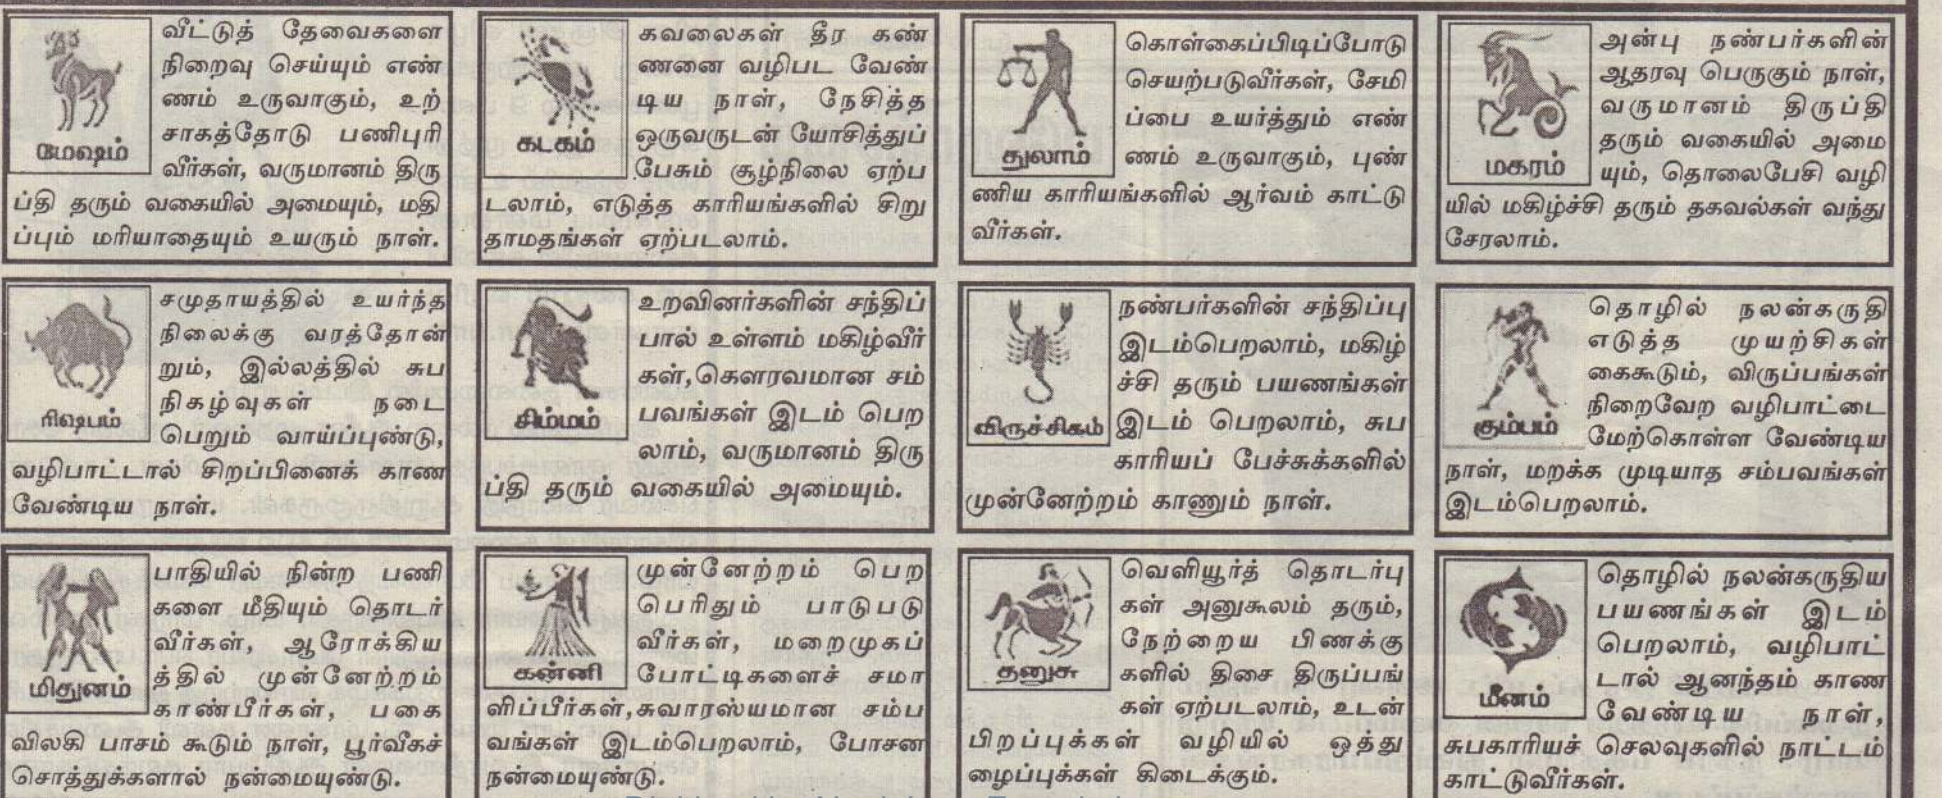 வீட்டுத் தேவைகளை
நிறைவு செய்யும் எண்
ணம் உருவாகும், உற்
சாகத்தோடு பணிபுரி
மேஷம்
வீர்கள், வருமானம் திரு
ப்தி தரும் வகையில் அமையும், மதி
ப்பும் மரியாதையும் உயரும் நாள்.
சமுதாயத்தில் உயர்ந்த
நிலைக்கு வரத்தோன்
றும், இல்லத்தில் சுப
நிகழ்வுகள் நடை
ரிஷபம்
பெறும் வாய்ப்புண்டு,
வழிபாட்டால் சிறப்பினைக் காண
வேண்டிய நாள்.
பாதியில் நின்ற பணி
களை மீதியும் தொடர்
வீர்கள், ஆரோக்கிய
த்தில் முன்னேற்றம்
மிதுனம்
காண்பீர்கள், பகை
விலகி பாசம் கூடும் நாள், பூர்வீகச்
சொத்துக்களால் நன்மையுண்டு.
கவலைகள் தீர கண்
ணனை வழிபட வேண்
டிய நாள், நேசித்த
ஒருவருடன் யோசித்துப்
கடகம்
பேசும் சூழ்நிலை ஏற்ப
டலாம், எடுத்த காரியங்களில் சிறு
தாமதங்கள் ஏற்படலாம்.
உறவினர்களின் சந்திப்
பால் உள்ளம் மகிழ்வீர்
கள்,கௌரவமான சம்
பவங்கள் இடம் பெற
சிம்மம்
லாம், வருமானம் திரு
ப்தி தரும் வகையில் அமையும்.
முன்னேற்றம் பெற
பெரிதும் பாடுபடு
வீர்கள், மறைமுகப்
கன்னி
போட்டிகளைச் சமா
ளிப்பீர்கள்,சுவாரஸ்யமான சம்ப
வங்கள் இடம்பெறலாம், போசன
நன்மையுண்டு.
கொள்கைப்பிடிப்போடு
செயற்படுவீர்கள், சேமி
ப்பை உயர்த்தும் எண்
துலாம்
ணம் உருவாகும், புண்
ணிய காரியங்களில் ஆர்வம் காட்டு
வீர்கள்.
நண்பர்களின் சந்திப்பு
இடம்பெறலாம், மகிழ்
ச்சி தரும் பயணங்கள்
விருச்சிகம்
இடம் பெறலாம், சுப
காரியப் பேச்சுக்களில்
முன்னேற்றம் காணும் நாள்.
வெளியூர்த் தொடர்பு
கள் அனுகூலம் தரும்,
நேற்றைய பிணக்கு
களில் திசை திருப்பங்
தனுசு
கள் ஏற்படலாம், உடன்
பிறப்புக்கள் வழியில் ஒத்து
ழைப்புக்கள் கிடைக்கும்.
அன்பு நண்பர்களின்
ஆதரவு பெருகும் நாள்,
வருமானம் திருப்தி
தரும் வகையில் அமை
மகரம்
யும், தொலைபேசி வழி
யில் மகிழ்ச்சி தரும் தகவல்கள் வந்து
சேரலாம்.
தொழில் நலன்கருதி
எடுத்த முயற்சிகள்
கைகூடும், விருப்பங்கள்
நிறைவேற வழிபாட்டை
கும்பம்
மேற்கொள்ள வேண்டிய
நாள், மறக்க முடியாத சம்பவங்கள்
இடம்பெறலாம்.
தொழில் நலன்கருதிய
பயணங்கள் இடம்
பெறலாம், வழிபாட்
டால் ஆனந்தம் காண
மீனம்
வேண்டிய நாள்,
சுபகாரியச் செலவுகளில் நாட்டம்
காட்டுவீர்கள்.